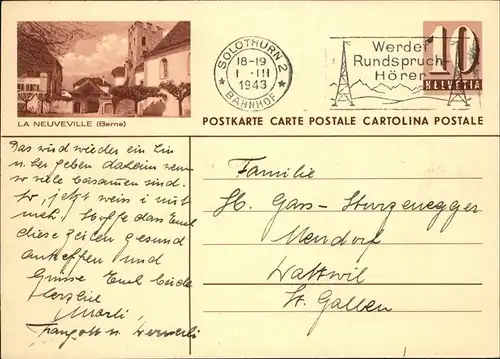 LA NEUVEVILLE (Berne)
SOLOTHURN 2
18-19
1 III
1943
BAHNHOF
Werdet
Rundspruch-
Hörer
10
HELVETIA
POSTKARTE CARTE POSTALE CARTOLINA POSTALE
Das wird wieder ein
geben daheim wenn
so viele beisamen sind.
So, jetzt weis i nüt
meh. Hoffe dass Euch
diese Zeilen gesund
antreffen und
Grüsse Euch beide
Herzlich
Marli,
Familie
H. Gass-Sturzenegger
Wattwil
St. Gallen